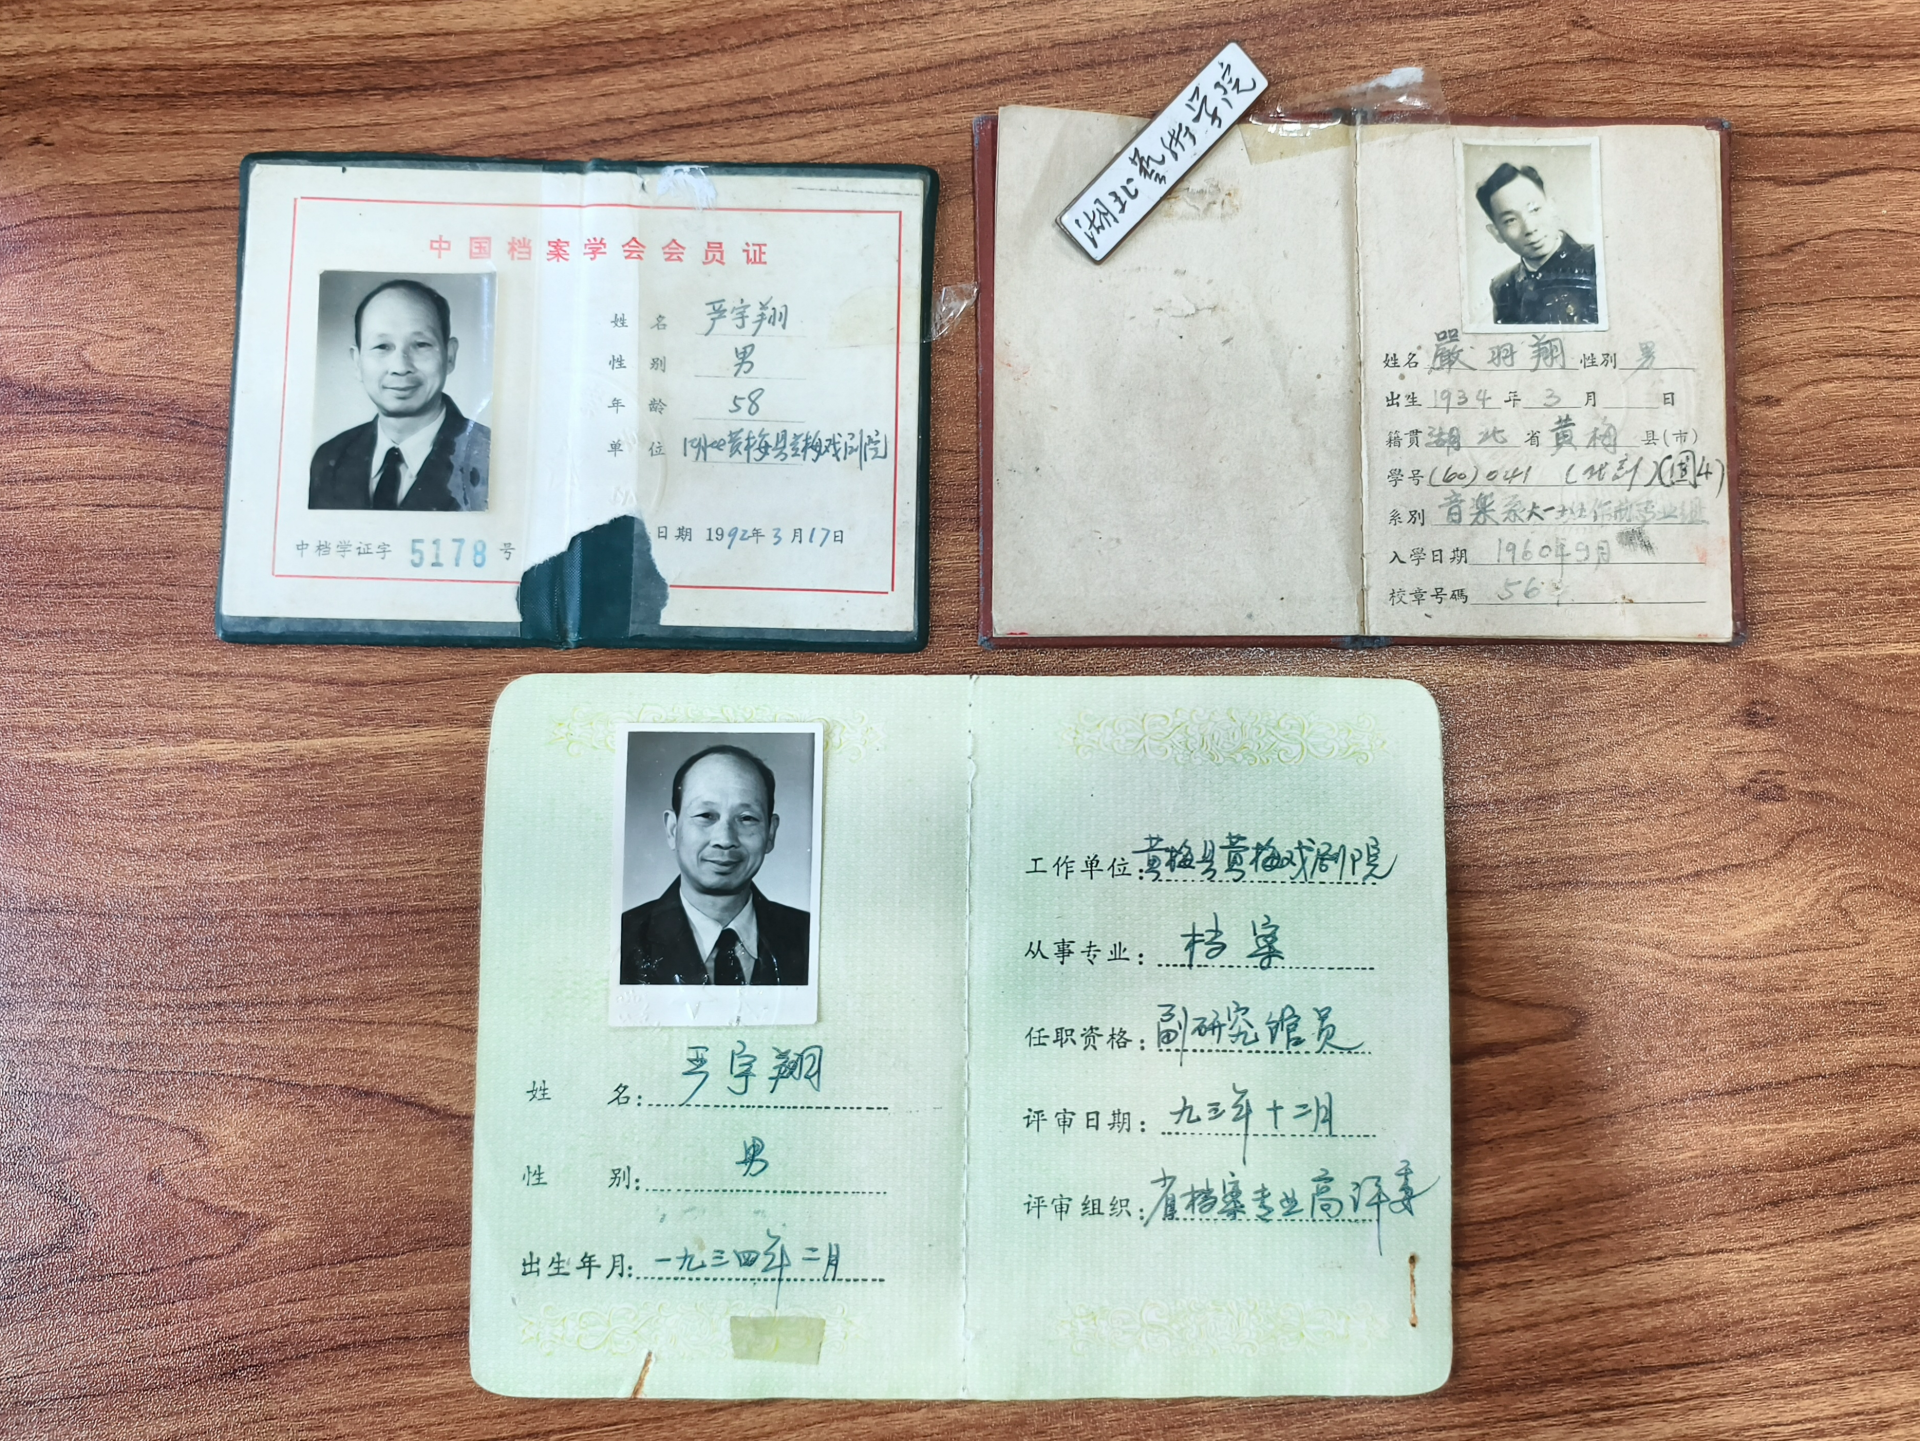 中国档案学会会员证
姓名 严宇翔
性别 男
年龄 58
单位 湖北黄梅县黄梅戏剧院
日期 1992年3月17日
中档学证字 5178 号
湖北艺术学院
姓名 嚴羽翔 性別 男
出生 1934 年 3 月 日
籍貫 湖北 省 黄梅 县(市)
學号 (60)041
系別 音楽系大一班作曲专业组
入學日期 1960年9月
校章号碼 56
姓名: 严宇翔
性别: 男
出生年月: 一九三四年二月
工作单位: 黄梅县黄梅戏剧院
从事专业: 档案
任职资格: 副研究馆员
评审日期: 九三年十二月
评审组织: 省档案专业高评委